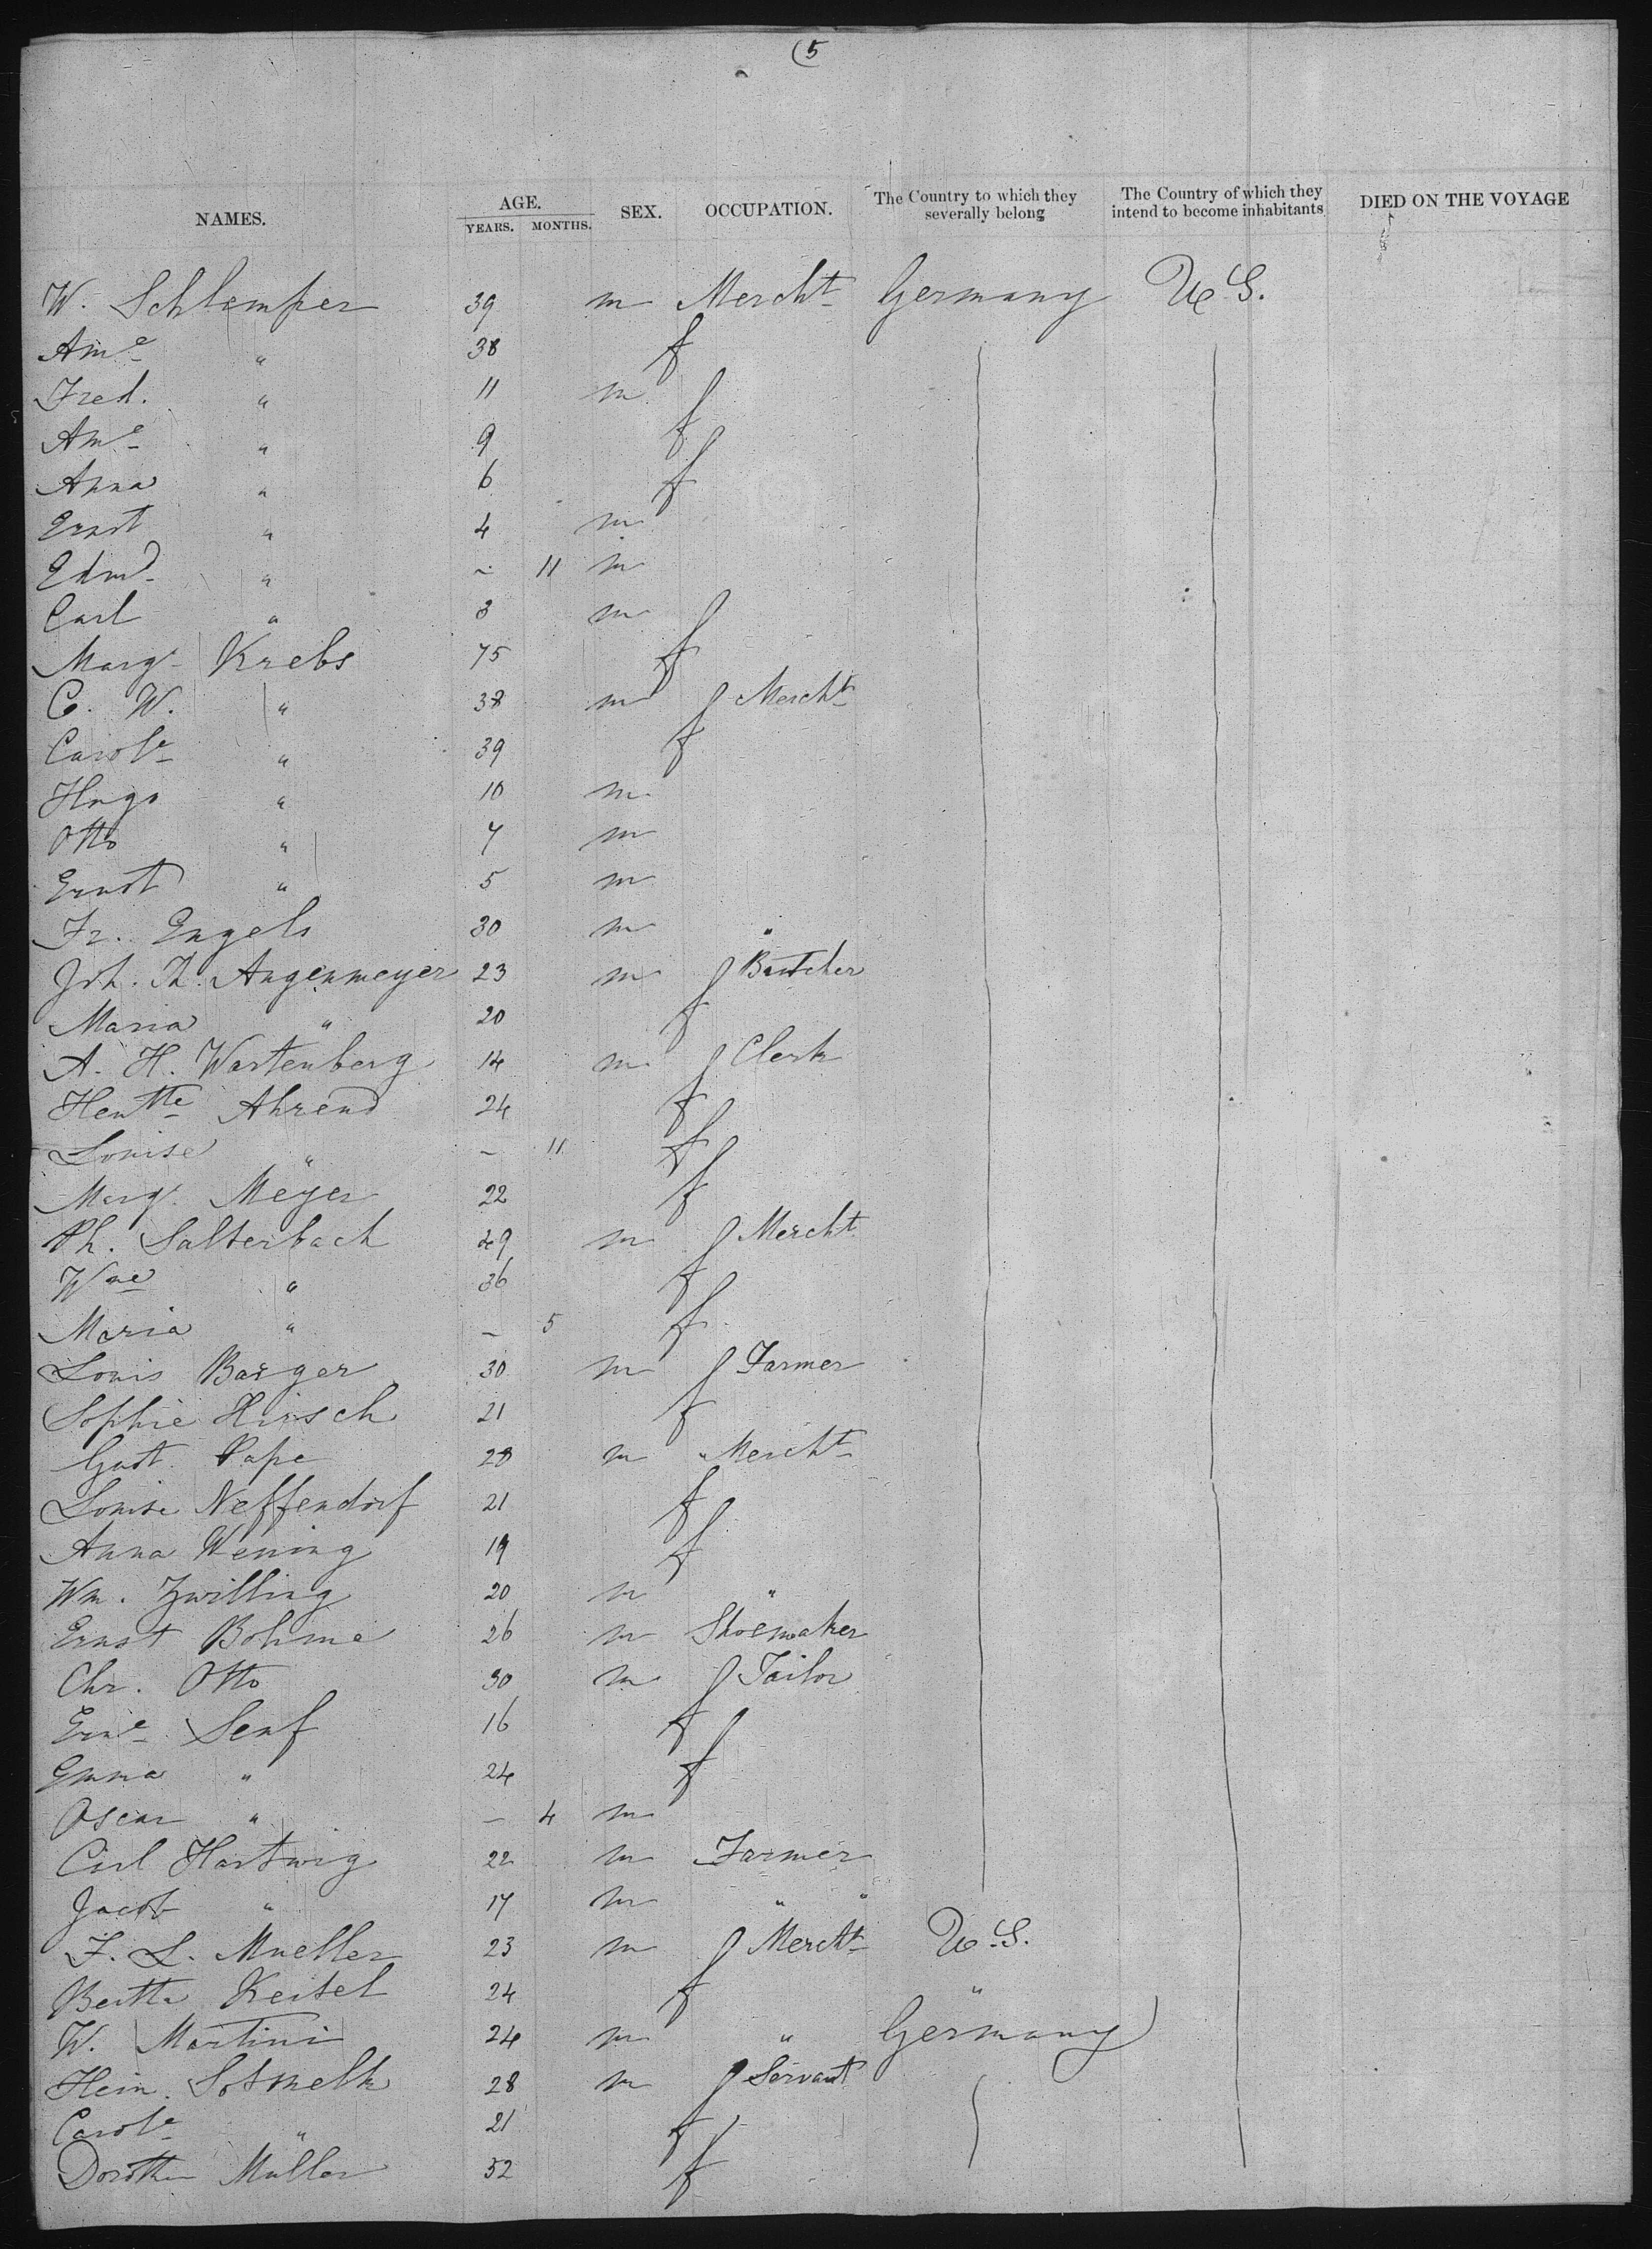 (5
NAMES. AGE. YEARS. MONTHS. SEX. OCCUPATION. The Country to which they severally belong The Country of which they intend to become inhabitants DIED ON THE VOYAGE
W. Schlemper 39 m Mercht Germany U.S.
Ame " 38 f
Fred. " 11 m
Ame " 9 f
Anna " 6 f
Ernst " 4 m
Edmd " – 11 m
Carl " 3 m
Margt Krebs 75 f
C. W. " 38 m Mercht
Carole " 39 f
Hugo " 10 m
Otto " 7 m
Ernst " 5 m
Fr. Engels 30 m "
Joh. Th. Angenmeyer 23 m Butcher
Maria " 20 f
A. H. Wartenberg 14 m Clerk
Hentte Ahrend 24 f
Louise " – 11 f
Margt. Meyer 22 f
Ph. Salterbach 49 m Mercht
Wme " 36 f
Maria " – 5 f
Louis Barger 30 m Farmer
Sophie Hirsch 21 f
Gust. Pape 28 m Mercht
Louise Neffendorf 21 f
Anna Wening 19 f
Wm. Zwilling 20 m "
Ernst Bohme 26 m Shoemaker
Chr. Otto 30 m Tailor
Erne Senf 16 f
Emma " 24 f
Oscar " – 4 m
Carl Hartwig 22 m Farmer
Jacob " 17 m " "
F. L. Mueller 23 m Mercht U.S.
Bertha Keitel 24 f "
W. Martini 24 m " Germany
Hein. 28 m Servant
Carole " 21 f
Dorothe Muller 52 f